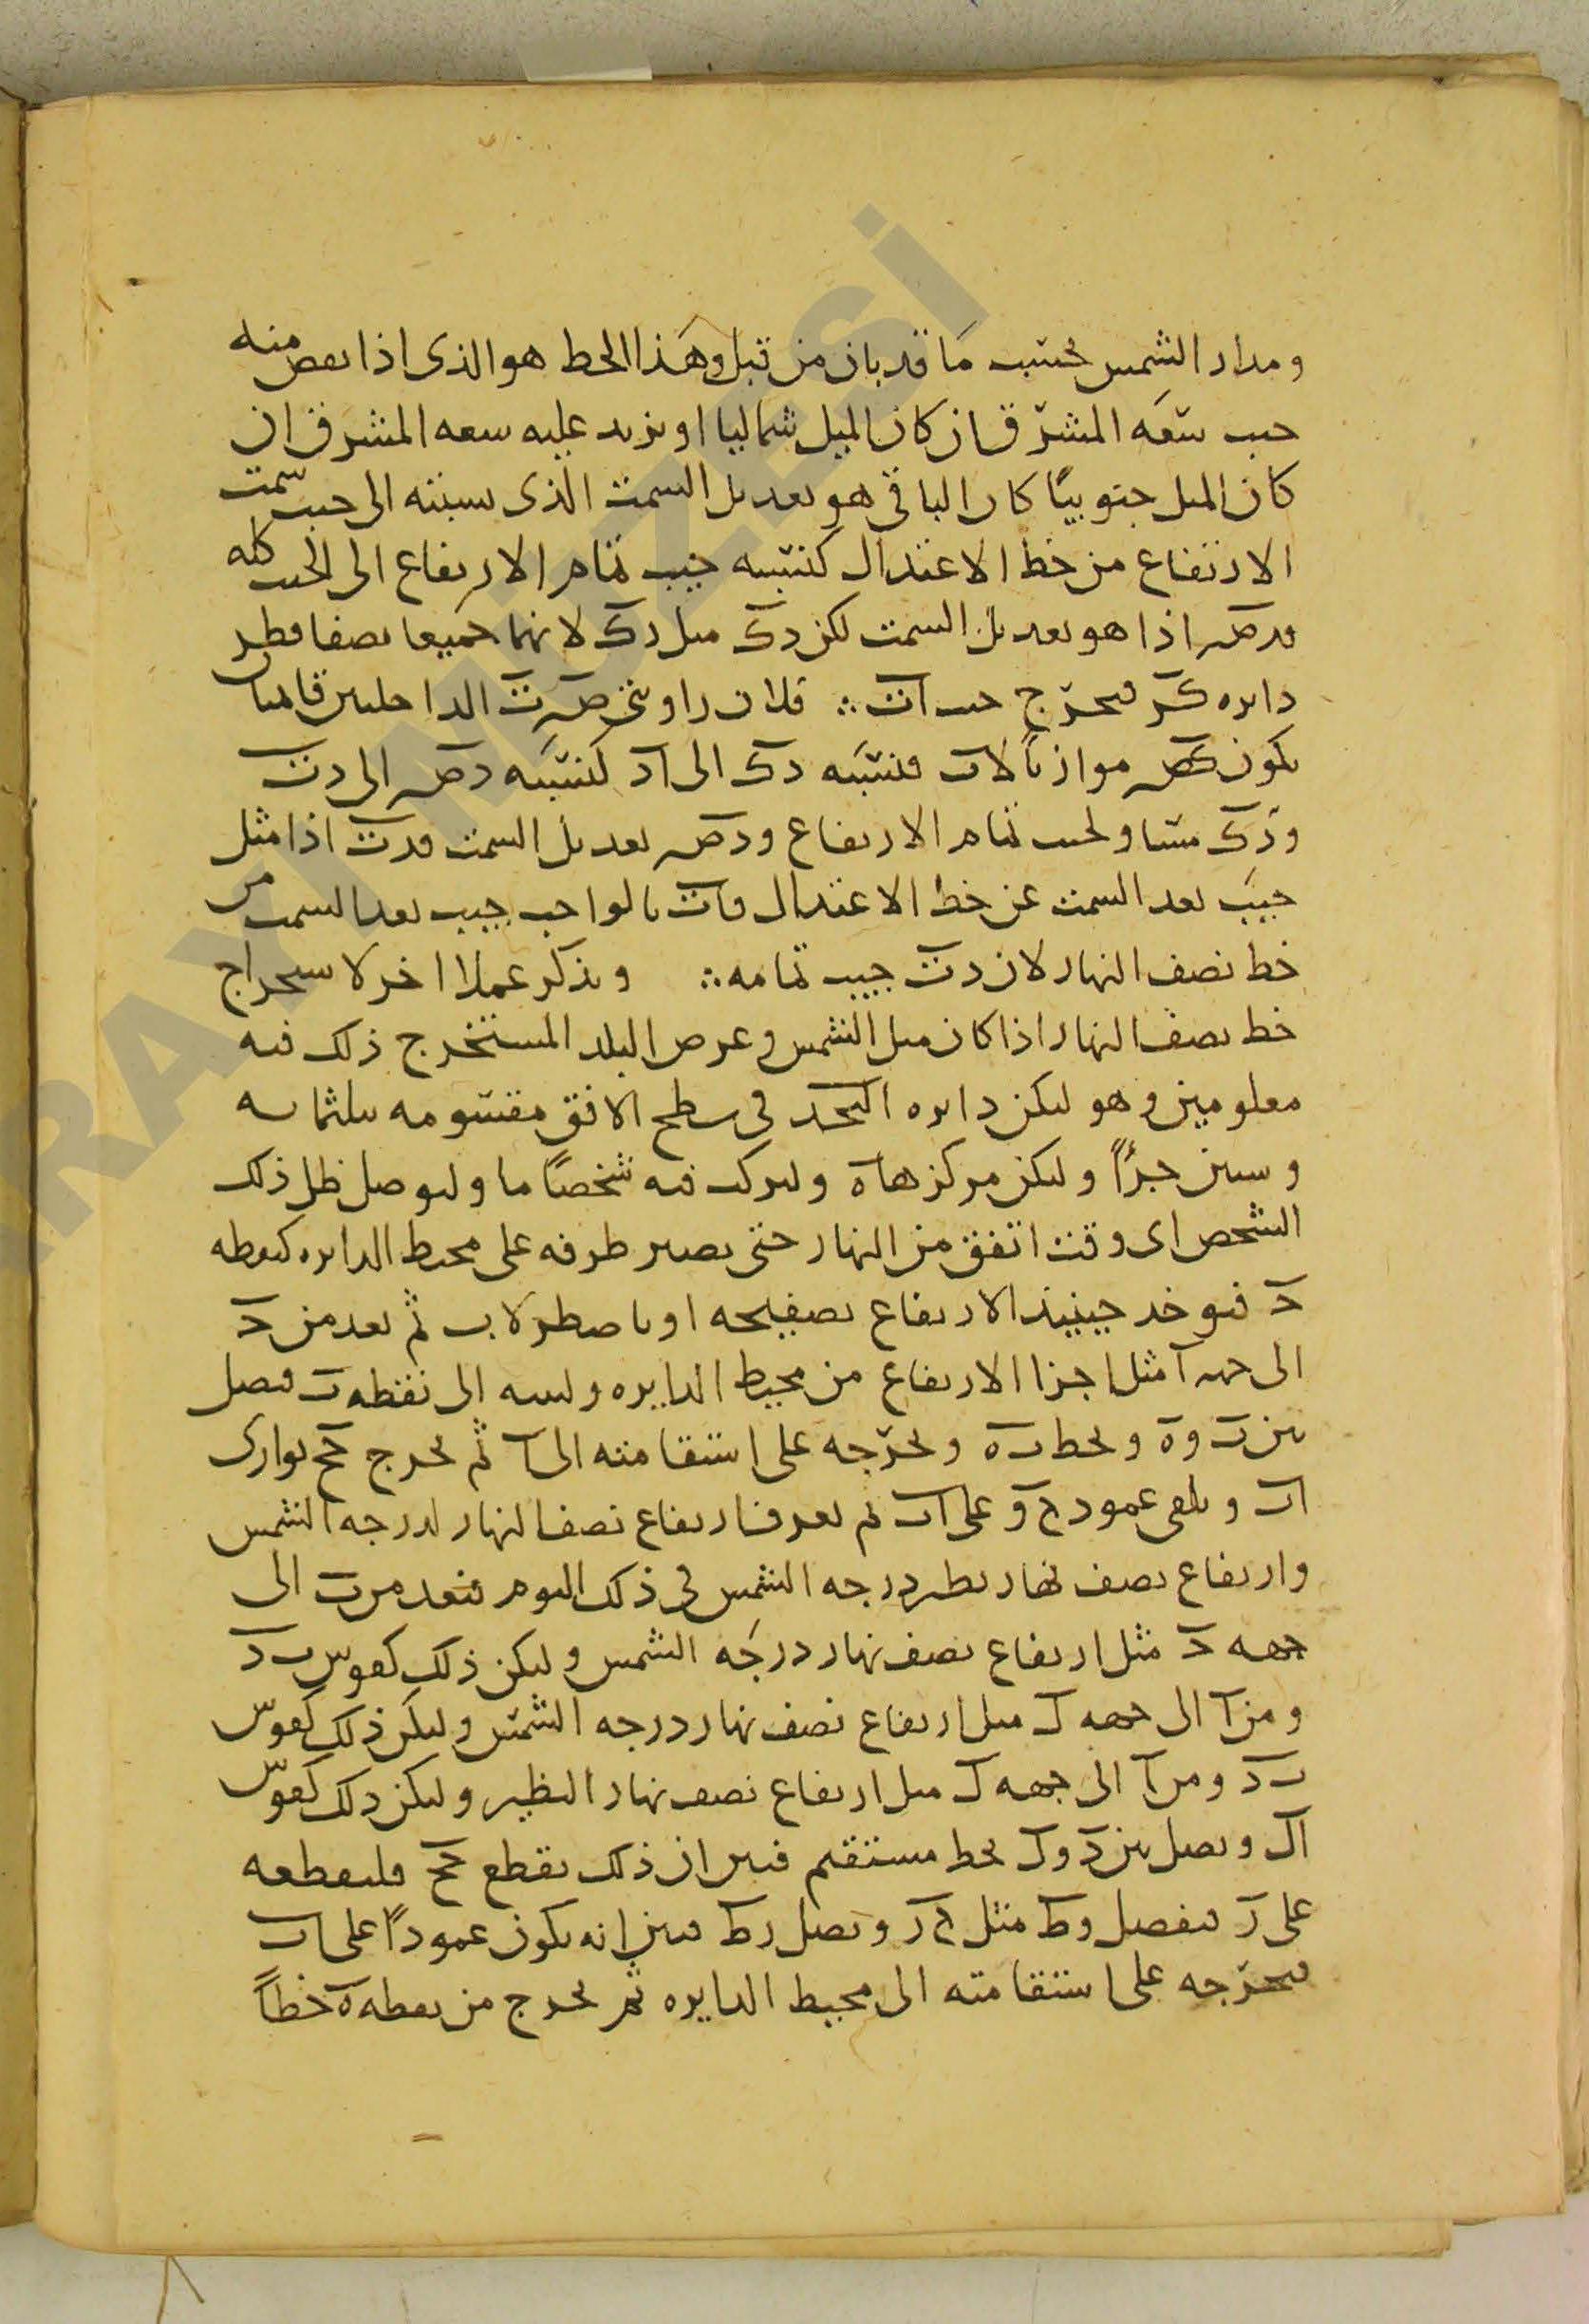 ومدار الشمس بحسب ما قد بان من قبل وهذا الخط هو الذى اذا نقص منه
جيب سعه المشرق ان كان الميل شماليا او نزيد عليه سعه المشرق ان
كان الميل جنوبيًا كان الباقى هو تعديل السمت الذى نسبته الى جيب سمت
الارتفاع من خط الاعتدال كنسبه جيب تمام الارتفاع الى الجيب كله
فدص اذا هو تعديل السمت لكن دك مثل دك لانهما جميعا نصفا قطر
دايره كر فيخرج جيب ات ∴ فلان زاويتى ص ت الداخلتين قايمتان
يكون كص موازياً لات فنسبه دك الى اد كنسبه دص الى دت
ودك مساو لجيب تمام الارتفاع ودص تعديل السمت فدت اذا مثل
جيب بعد السمت عن خط الاعتدال فات بالواجب جيب بعد السمت من
خط نصف النهار لان دت جيب تمامه ∴ ونذكر عملا اخر لاستخراج
خط نصف النهار اذا كان ميل الشمس وعرض البلد المستخرج ذلك فيه
معلومين وهو ليكن دايره ابجد فى سطح الافق مقسومه بثلثمايه
وستين جزًا وليكن مركزها ه وليركب فيه شخصًا ما وليوصل ظل ذلك
الشخص اى وقت اتفق من النهار حتى يصير طرفه على محيط الدايره كنقطه
ح فيوخذ حينيذ الارتفاع بصفيحه او باصطرلاب ثم نعد من ح
الى جهه ا مثل اجزا الارتفاع من محيط الدايره ولينته الى نقطه ب فنصل
بين ب وه بخط به ونخرجه على استقامته الى ا ثم نخرج حح يوازى
اب ونلقى عمود ح و على اب ثم نعرف ارتفاع نصف النهار لدرجه الشمس
وارتفاع نصف نهار نظير درجه الشمس فى ذلك اليوم فنعد من ب الى
جهه ح مثل ارتفاع نصف نهار درجه الشمس وليكن ذلك كقوس ب د
ومن ا الى جهه ك مثل ارتفاع نصف نهار درجه الشمس وليكن ذلك كقوس
ب د ومن ا الى جهه ك مثل ارتفاع نصف نهار النظير وليكن ذلك كقوس
اك ونصل بين د وك بخط مستقيم فبين ان ذلك يقطع حح فليقطعه
على ز فنفصل وط مثل ح ز ونصل زط فبين انه يكون عمودًا على اب
فنخرجه على استقامته الى محيط الدايره ثم نخرج من نقطه ه خطاً